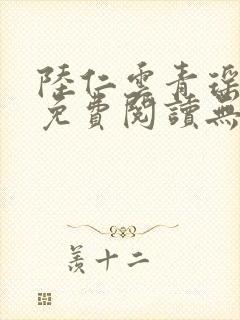 陸仁雲青瑶
免費閱讀無
羨十二